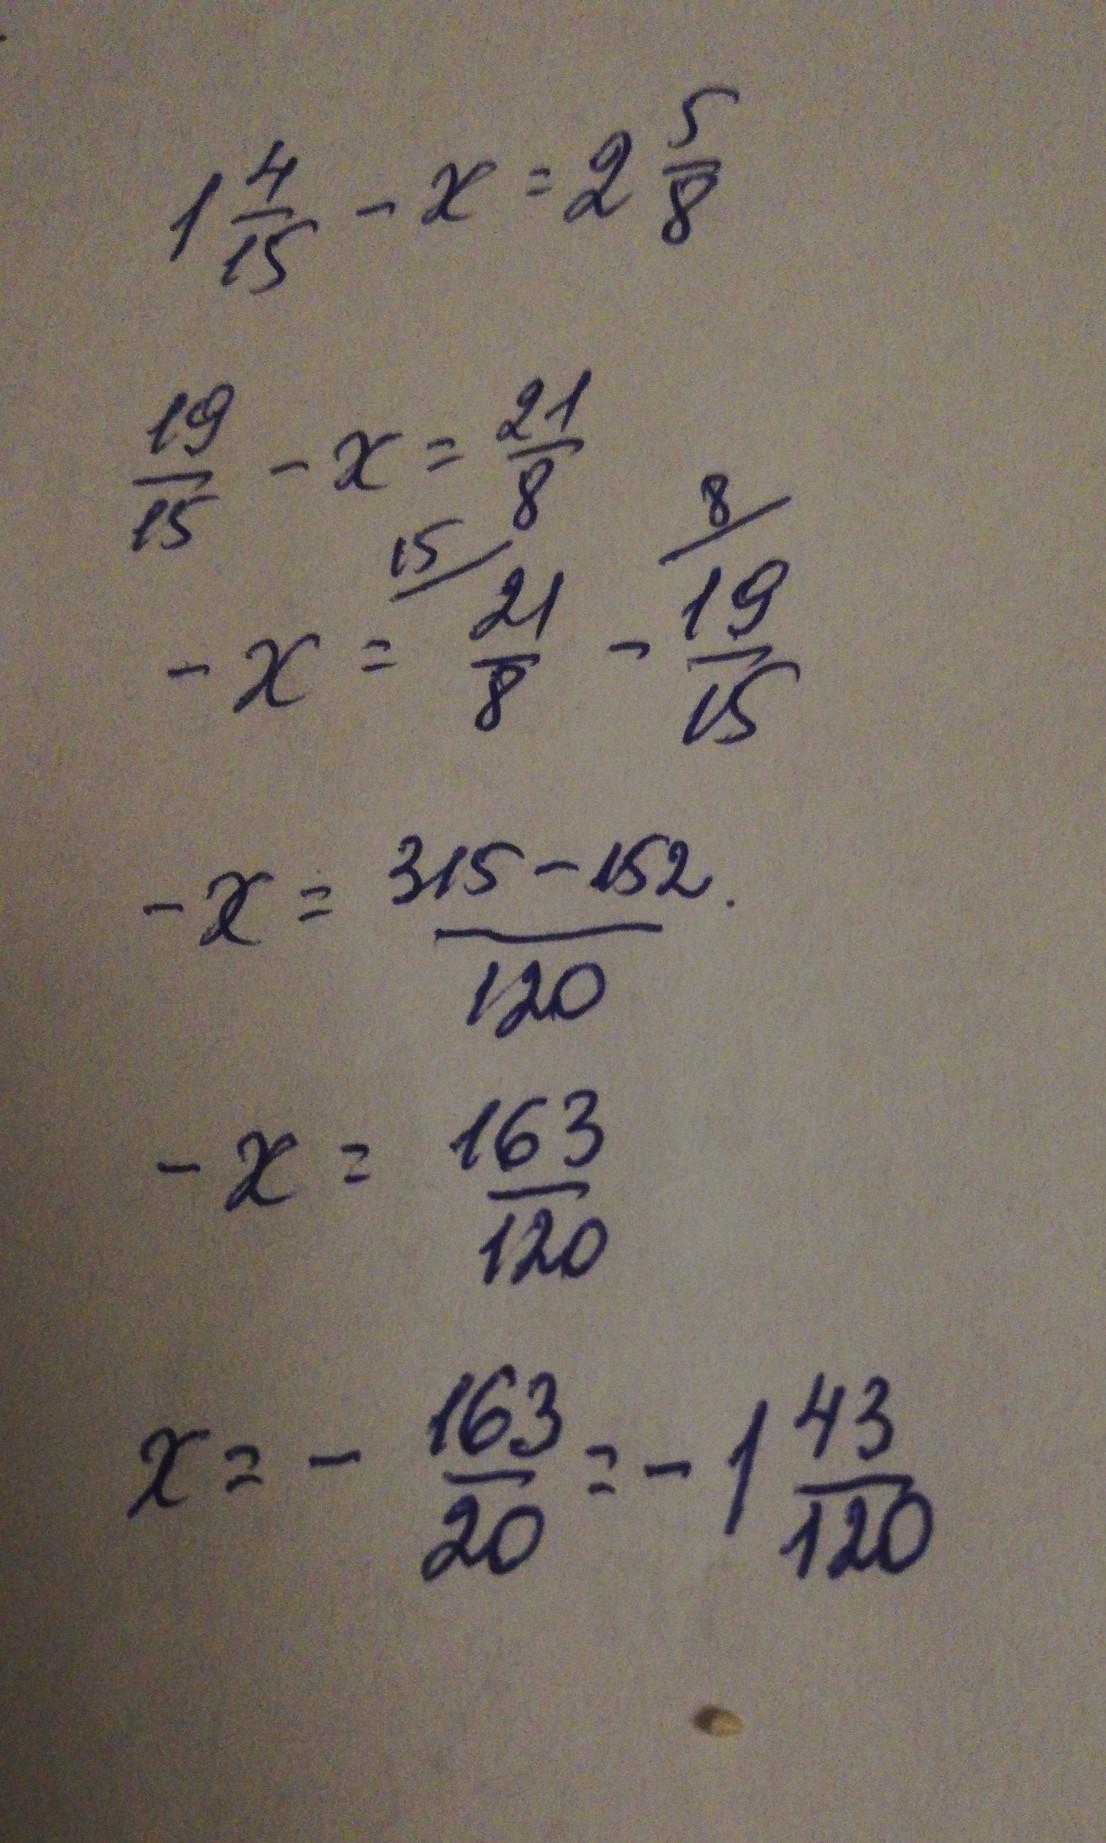 1 4/15 - x = 2 5/8
19/15 - x = 21/8
- x = 15/ 21/8 - 8/ 19/15
- x = 315 - 152. / 120
- x = 163/120
x = - 163/20 = - 1 43/120